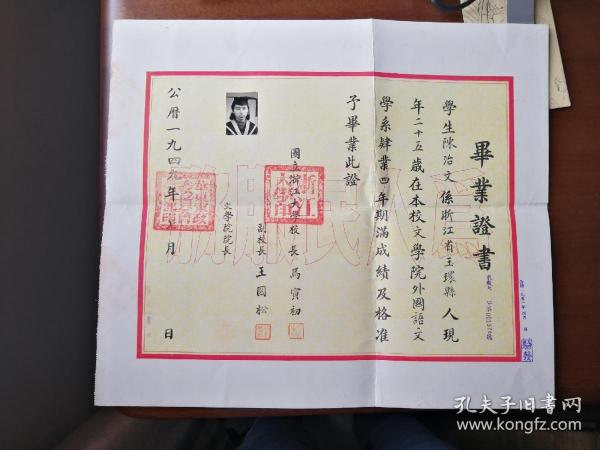 畢業證書
學生陳冶文係浙江省玉環縣人現
年二十五歲在本校文學院外國語文
學系肄業四年期滿成績及格准
予畢業此證
國立浙江大學校長馬寅初
副校長王國松
文學院院長
公曆一九四九年七月日
為人民服務
孔夫子旧书网
www.kongfz.com